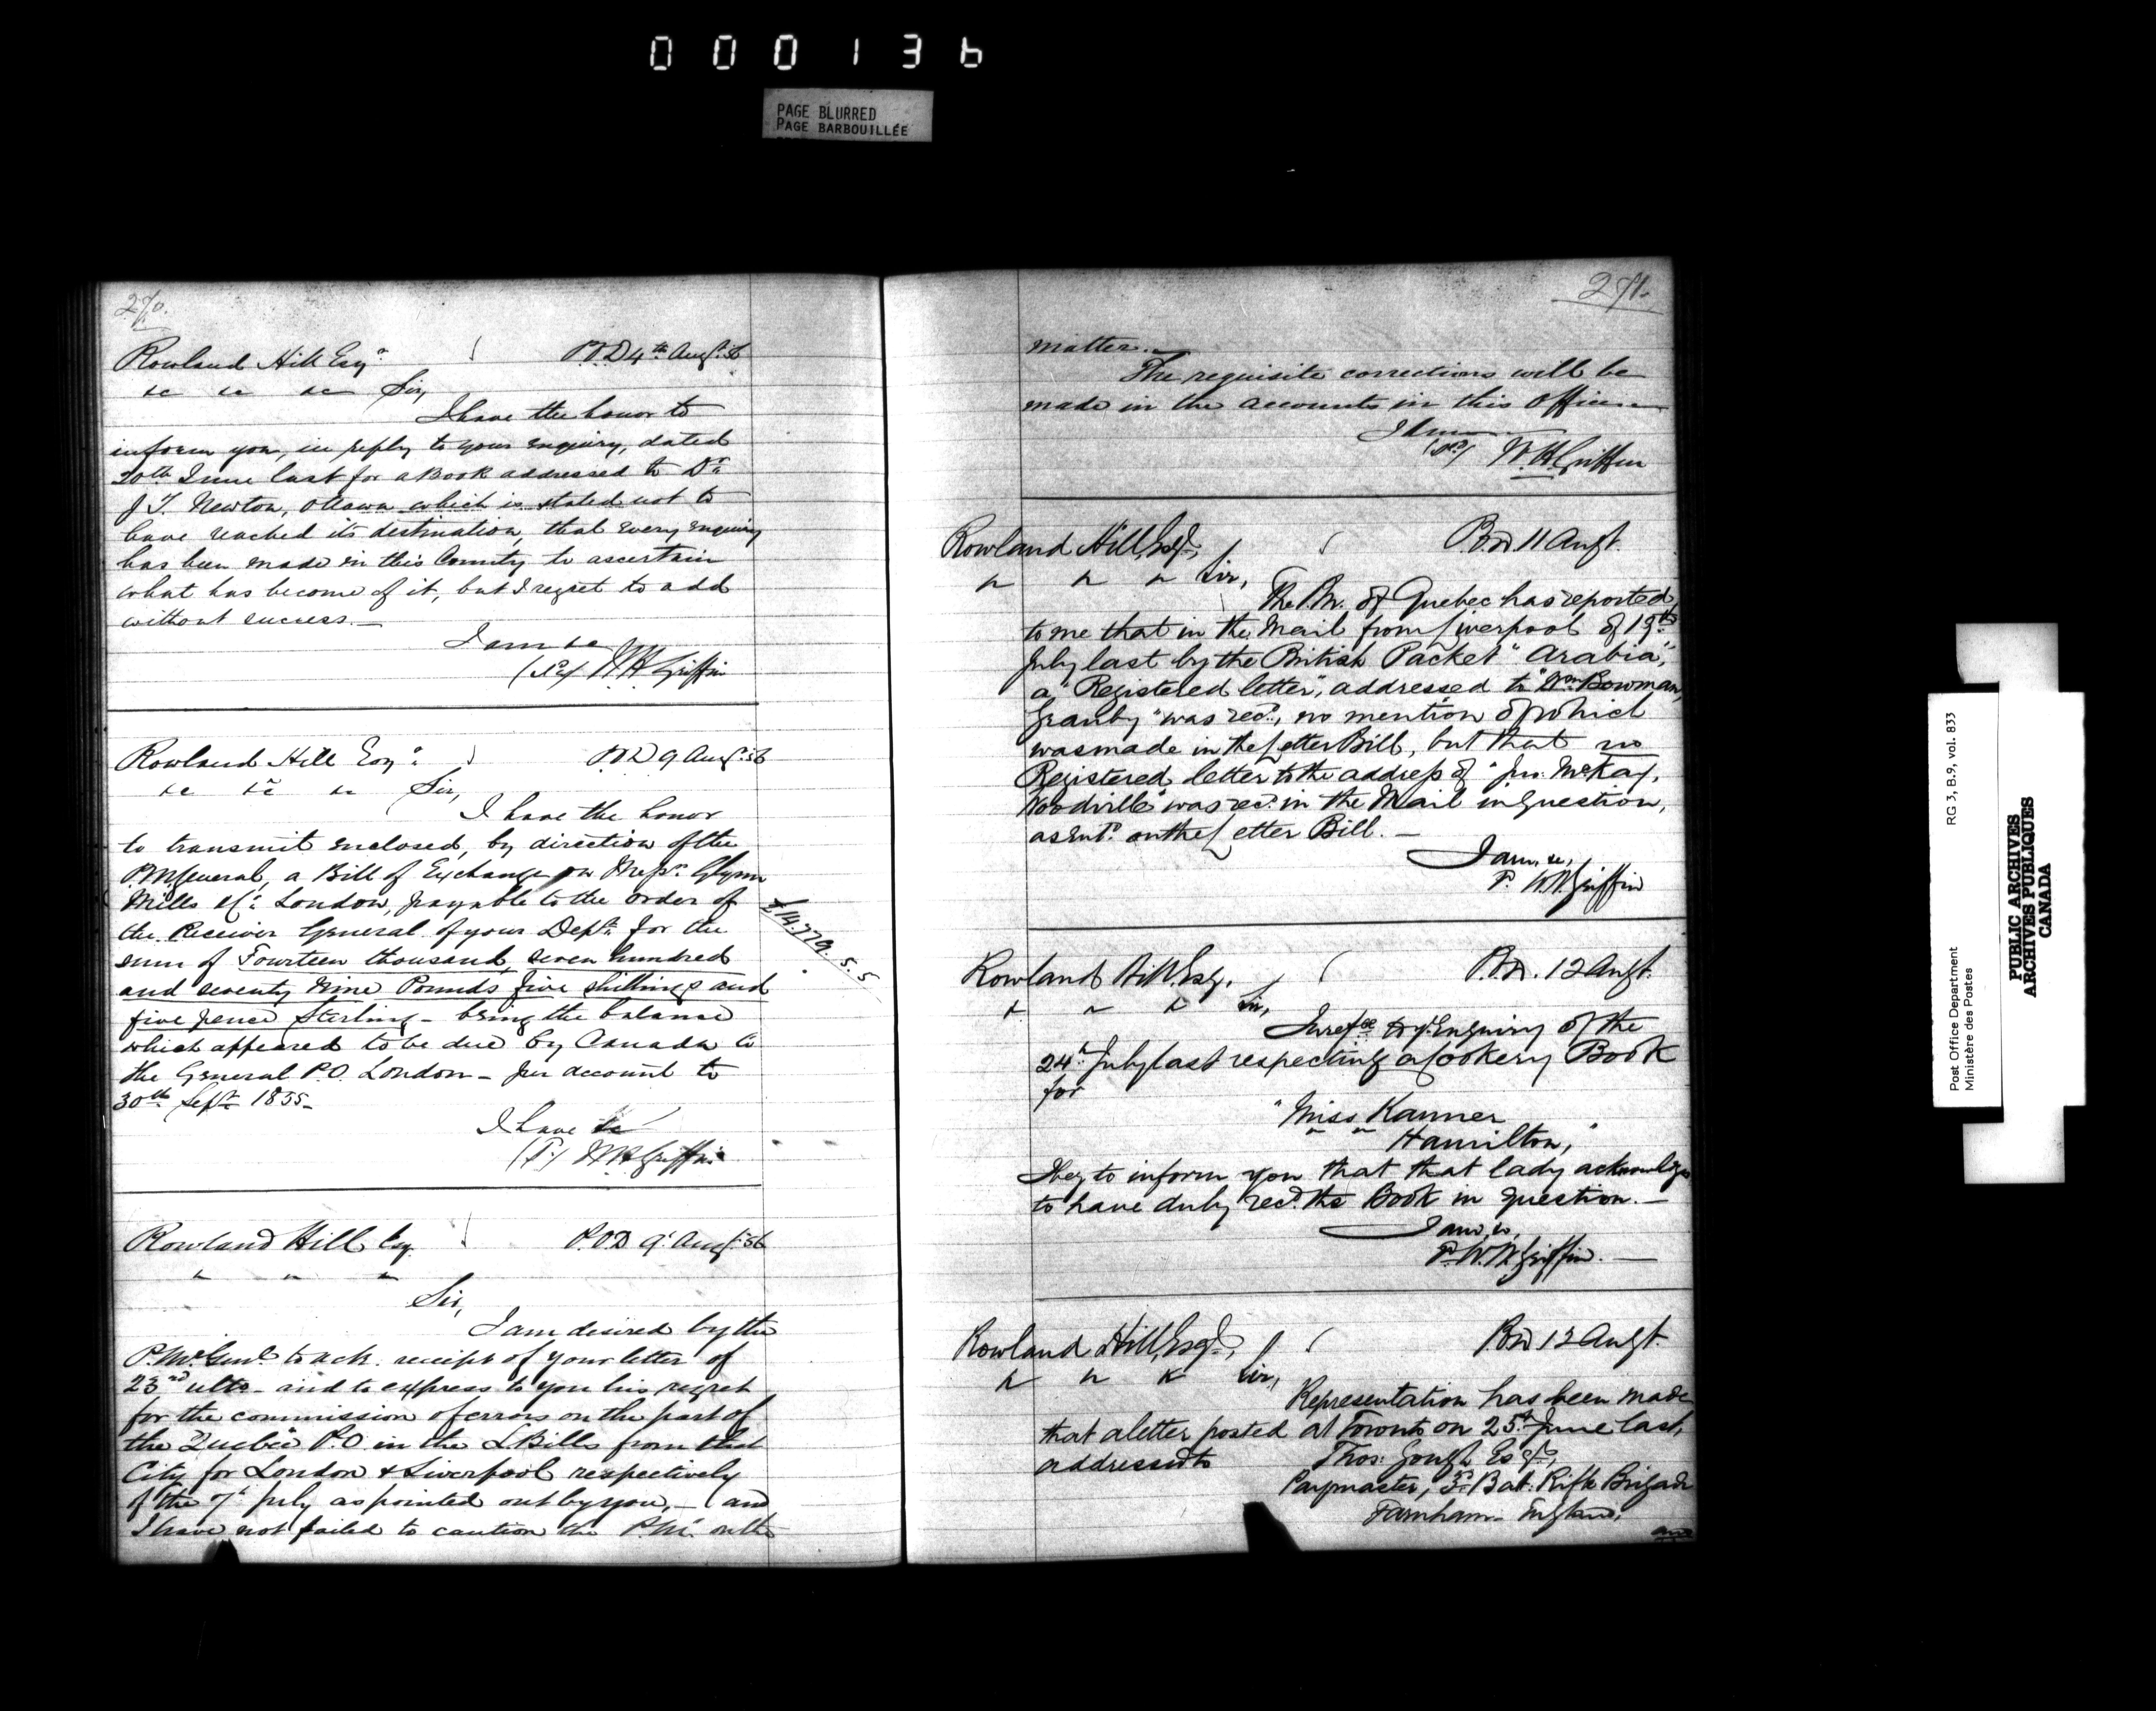 000136
PAGE BLURRED
PAGE BARBOUILLÉE
270.
Rowland Hill Esqr. P.O.D 4th Augt. 56
&c &c &c Sir,
I have the honor to
inform you, in reply to your enquiry, dated
20th June last for a Book addressed to Dr.
J T. Newton, Ottawa which is stated not to
have reached its destination, that every enquiry
has been made in this Country to ascertain
what has become of it, but I regret to add
without success.—
I am &c
(Sd) W H Griffin
Rowland Hill Esqr. P.O.D 9 Augt. 56
&c &c &c Sir,
I have the honor
to transmit enclosed, by direction of the
P.M. General, a Bill of Exchange on Messrs. Glynn
Mills & Co. London, payable to the order of
the Receiver General of your Dept. for the
sum of Fourteen thousand, seven hundred
and seventy nine Pounds five shillings and
five pence Sterling - being the balance
which appeared to be due by Canada to
the General P.O. London - per account to
30th Sept. 1855-
£14.779.5.5
I have &c
W H Griffin
Rowland Hill Esq. P.O.D 9 Augt. 56
" " "
Sir,
I am desired by the
P.Mr. Genl. to ack. receipt of your letter of
23rd ulto - and to express to you his regret
for the commission of errors on the part of
the Quebec P.O. in the L Bills from that
City for London & Liverpool respectively
of the 7th July as pointed out by you,- and
I have not failed to caution the P.Mr. on the
271.
matter.—
The requisite corrections will be
made in the accounts in this Office.—
I am
(Sd) W.H Griffin
Rowland Hill, Esqr., P.O.D 11 Augt.
" " " Sir,
The P.M. of Quebec has reported
to me that in the Mail from Liverpool of 19th
July last by the British Packet "Arabia",
a "Registered letter", addressed to "Wm. Bowman,
Granby" was recd., no mention of which
was made in the Letter Bill, but that no
Registered letter to the address of "Jno. McKay,
Woodville" was recd. in the Mail in question,
as entd. on the Letter Bill.—
I am, &c,
W.H. Griffin
Rowland Hill, Esq., P.O.D. 12 Augt.
" " " Sir,
In refce to yr. Enquiry of the
24th July last respecting a Cookery Book
for
"Miss Kanner
" " Hamilton,"
I beg to inform you that that lady acknowledges
to have duly recd. the Book in question.—
I am, &c,
W.H. Griffin.—
Rowland Hill, Esqr., P.O.D 12 Augt.
" " " Sir,
Representation has been made
that a letter posted at Toronto on 25th June last,
addressed to Thos: Gough Esqr.,
Paymaster, 3d. Bat: Rifle Brigade
Farnham - England,
and
Post Office Department RG 3, B.9, vol. 833
Ministère des Postes
PUBLIC ARCHIVES
ARCHIVES PUBLIQUES
CANADA